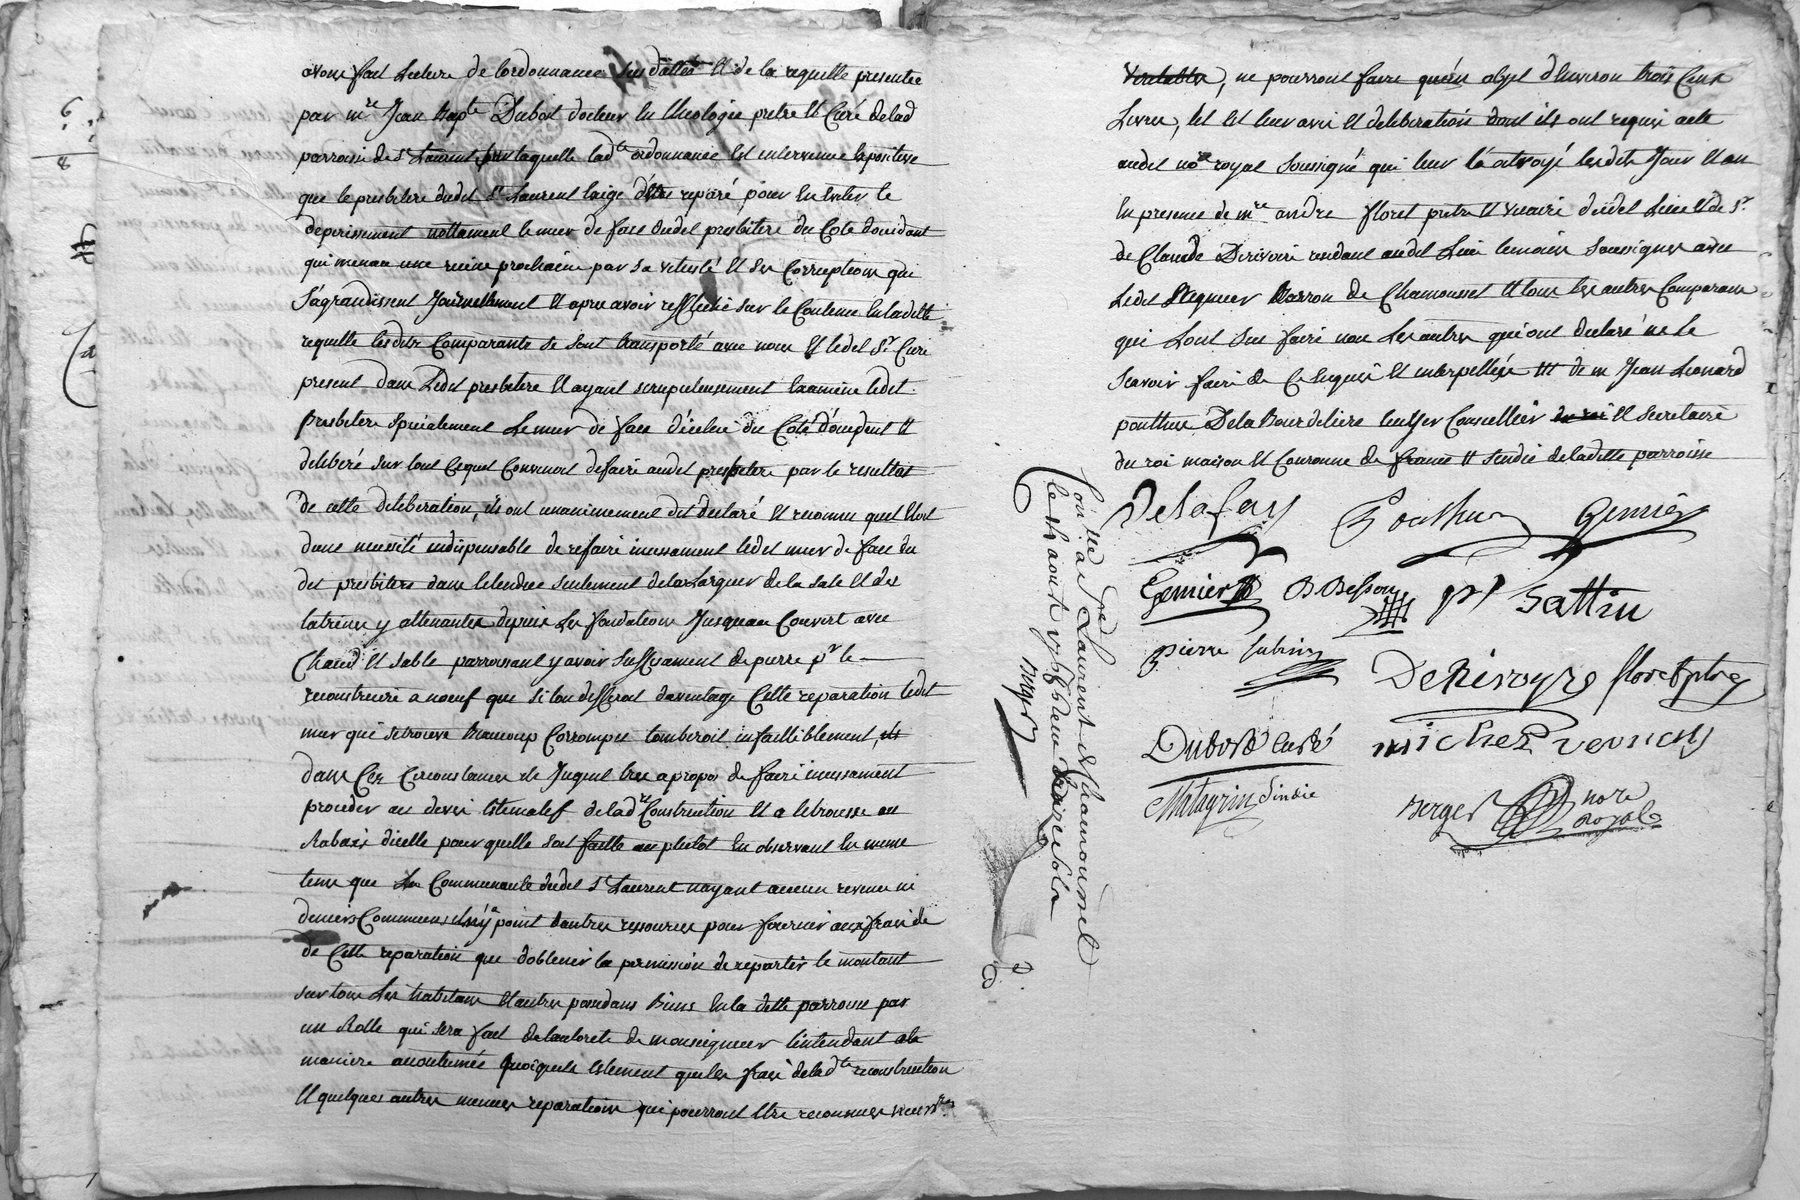 avons fait Lecture de lordonnance sus dattée et de la requette presentée
par mre Jean Bapte Dubost docteur en theologie pretre et Curé de lad
parroisse de St Laurent sur laquelle ladte ordonnance est intervenue expositive
que le presbitere dudit St Laurent exige d'être reparé pour en eviter le
deperissement nottament le mur de face dudit presbitere du Coté doccidant
qui menace une ruine prochaine par sa vetusté et ses Corruptions qui
s'agrandissent Journellement et apres avoir refflechi sur le Contenu en ladette
requette lesdits Comparants se sont transporté avec nous et ledit Sr Curé
present dans Ledit presbitere et ayant scrupuleusement Examiné ledit
Presbitere spécialement Le mur de face d'icelui du Coté d'occident et
deliberé sur tout ce quil Convenoit de faire audit presbitere par le resultat
de cette deliberation, ils ont unanimement dit declaré et reconnu quil etoit
dune necessité indispensable de refaire incessament ledit mur de face du
dit presbitere dans letendue seulement de la Largeur de la sale et des
latrines y attenantes depuis Les fondations Jusquau Couvert avec
Chaud et sable parroissant y avoir suffisament de pierre pr le
reconstruire a neuf que si lon differoit davantage Cette reparation ledit
mur qui se trouve Beaucoup Corrompu tomberoit infailliblement,
dans Ces Circonstances ils Jugent tres apropos de faire incessament
proceder au devis estimatif de lad Construction et a letrousse au
Rabais dicelle pour quelle soit faitte au plutot en observant en meme
tems que La Communauté dudit St Laurent nayant aucun revenu ni
deniers Communs il n'y a point dautres ressources pour fournir aux frais de
de Cette reparation que dobtenir la permission de repartir le montant
sur tous Les habitans et autres possedans Biens en la ditte parroisse par
un Rolle qui sera fait de lautorité de monseigneur lintendant a la
maniere accoutumée quoiquils estiment que les frais de ladte reconstruction
et quelques autres menues reparations qui pourront etre reconnues necessres
veritables, ne pourront faire qu'un objet d'Environ trois Cent
Livres, tel est leur avis et deliberation dont ils ont requis acte
audit nore royal soussigné qui leur l'a octroyé lesdits Jour et an
En presence de mre andré floret pretre et vicaire dudit Lieu et de Sr
de Claude Derivoire rendant audit Lieu temoins soussignes avec
Ledit Seigneur Barron de Chamousset et tous les autres Comparans
qui L'ont sus faire non Les autres qui ont declaré ne le
scavoir faire de Ce enquis et interpellés et de m Jean Leonard
pouthus De la Bourdeliere ecuyer Conseiller du roi et secretaire
du roi maison et Couronne de france et sindic de ladette parroisse
Delafay Pouthus Gemier
Gemier B Besson pre Sattin
pierre
DeRivoyre floret ptre
Dubost Curé michel vernay
Matagrin sindic Berger nore
royal
Conllé a St Laurent de Chamousset
le aout